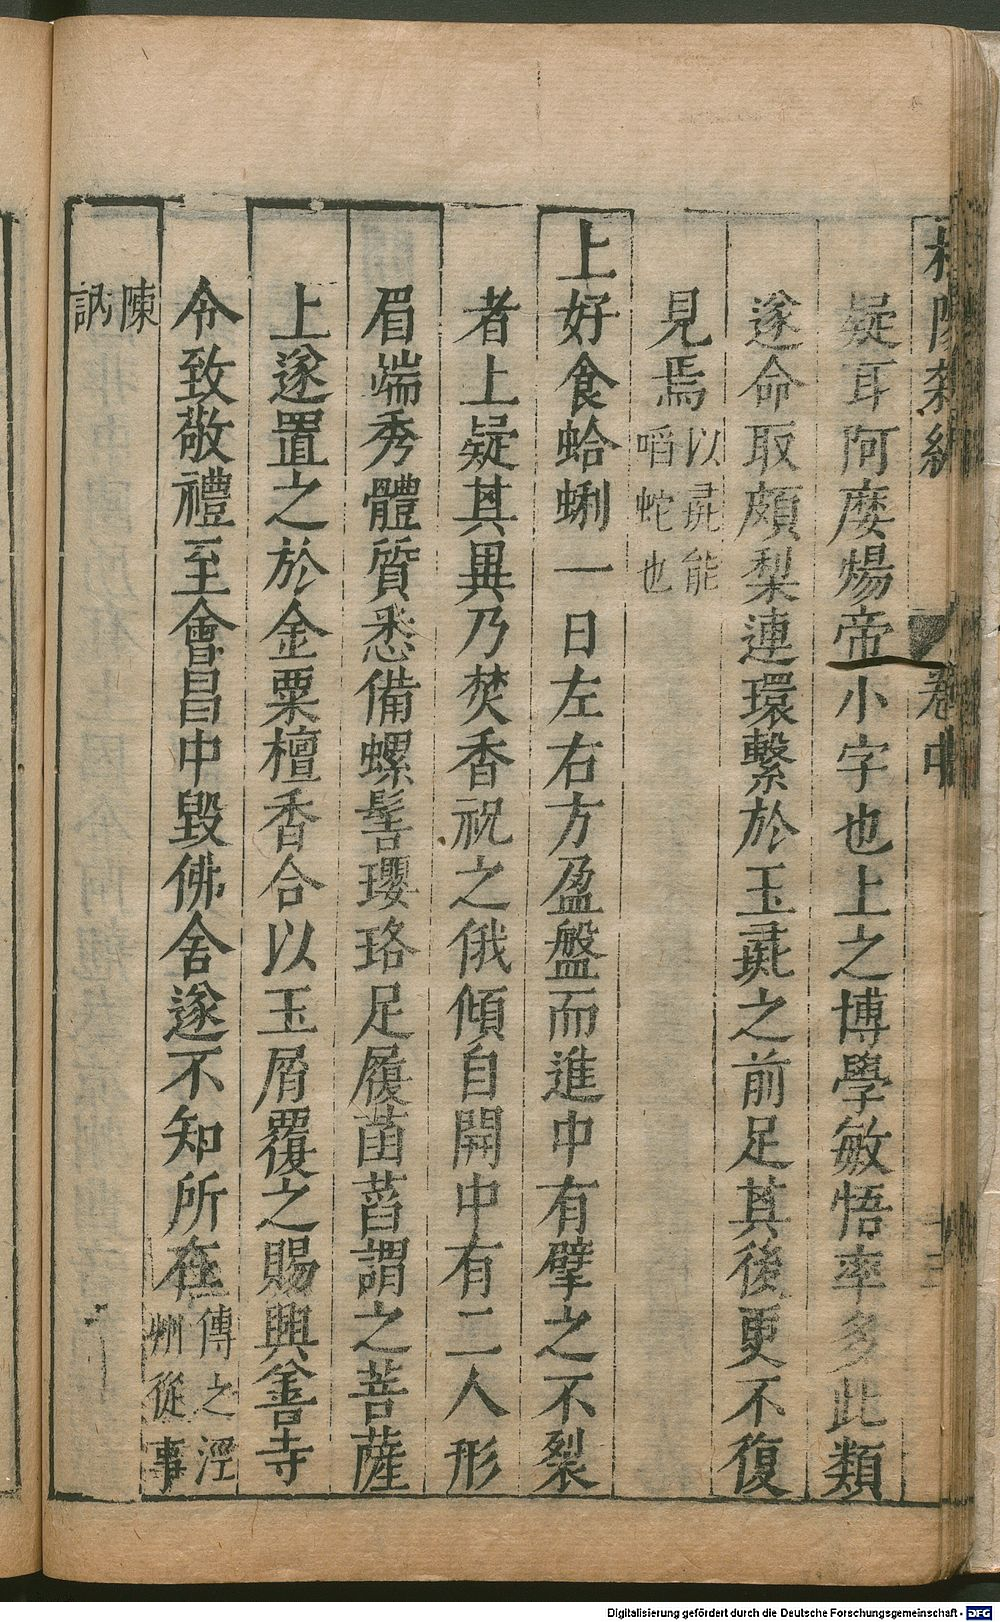 杜陽雜編 卷中
疑耳阿𡡉煬帝小字也上之博學敏悟率多此類
遂命取頗梨連環繫於玉彘之前足其後更不復
見焉以彘能㗖蛇也
上好食蛤蜊一日左右方盈盤而進中有擘之不裂
者上疑其異乃焚香祝之俄傾自開中有二人形
眉端秀體質悉備螺髻瓔珞足履菡萏謂之菩薩
上遂置之於金粟檀香合以玉屑覆之賜興善寺
令致敬禮至會昌中毀佛舍遂不知所在傳之涇州從事
陳訥
Digitalisierung gefördert durch die Deutsche Forschungsgemeinschaft - DFG